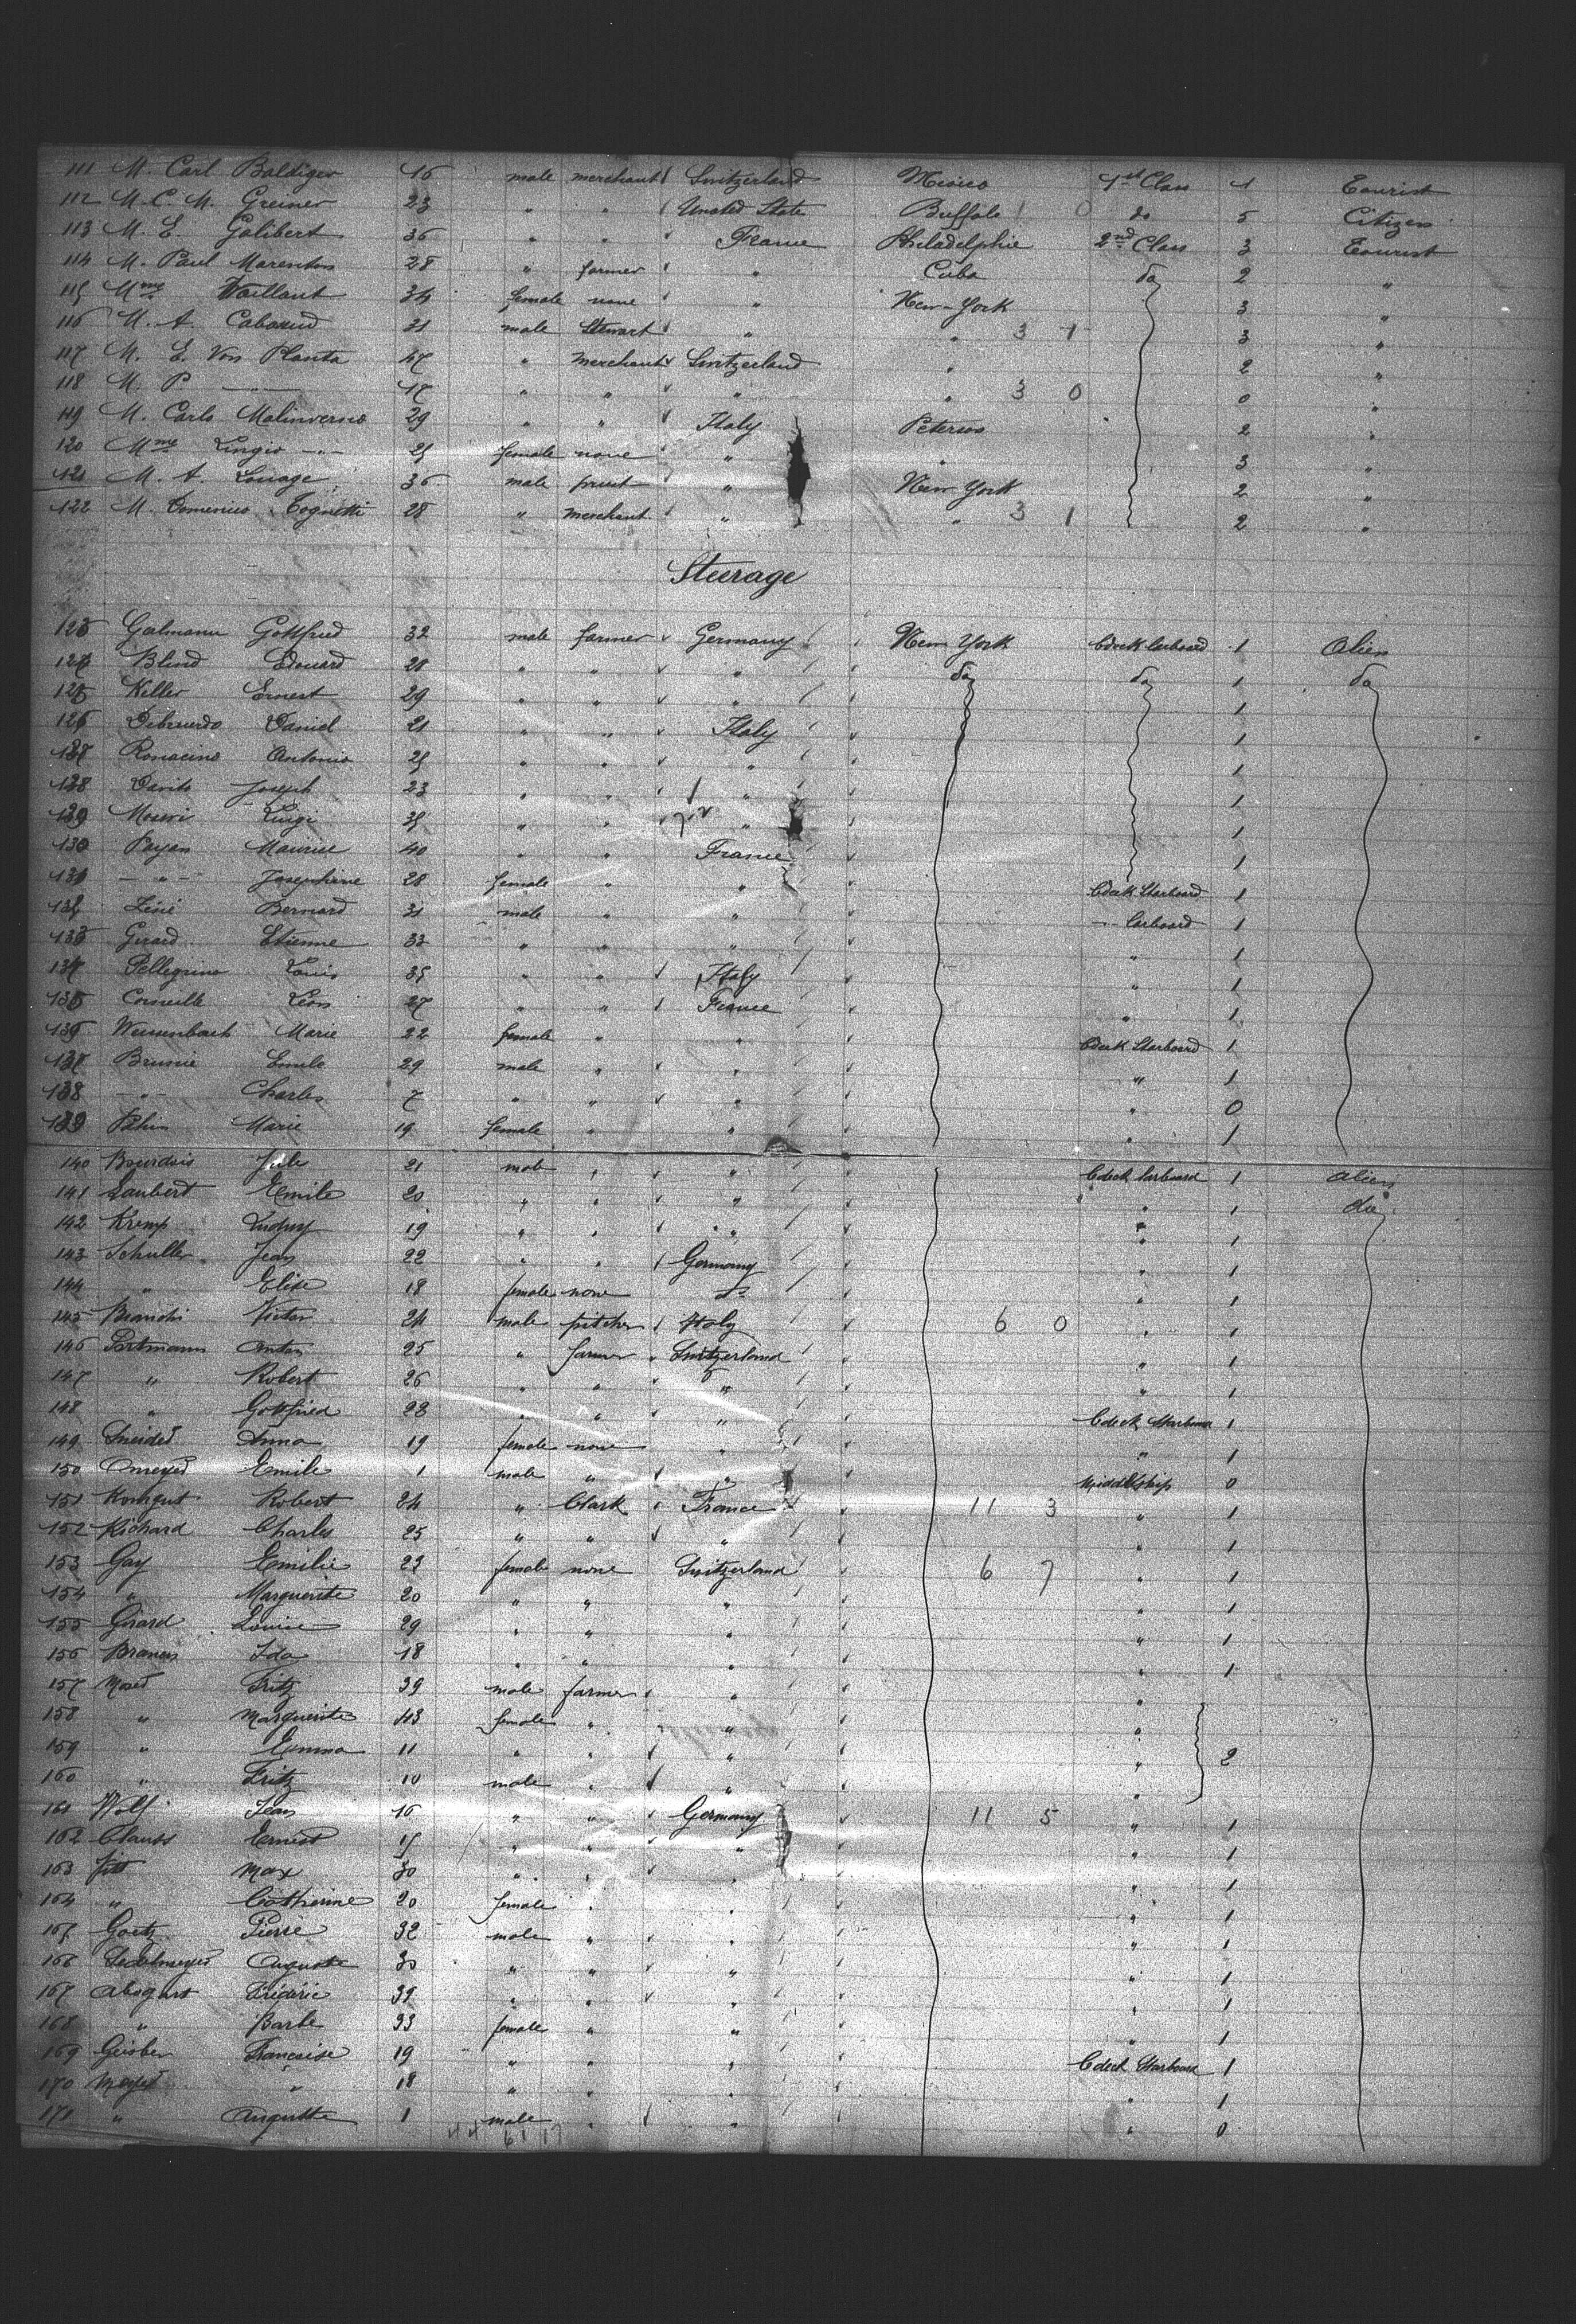 111 M. Carl Baldiger 46 male merchant Switzerland Mexico 1st Class 1 Tourist
112 M. C. M. Greiner 23 " " United State Buffalo 1 0 do 5 Citizen
113 M. E. Galibert 36 " " France Philadelphie 2nd Class 3 Tourist
114 M. Paul Marenton 28 " farmer " Cuba do 2 "
115 Mme Vaillant 34 female none " New-York 3 "
116 M. A. 31 male Stewart " " 3 1 3 "
117 M. E. Von Planta 47 " merchant Switzerland " 2 "
118 M. P. —"— 17 " " " " 3 0 0 "
119 M. Carlo Malinverno 29 " " Italy Peterson 2 "
120 Mme -"- 25 female none " " 3 "
121 M. A. 36 male " New York 2 "
122 M. Domenico Tognetti 28 " merchant " " 3 1 2 "
Steerage
123 Galmann Gottfried 32 male farmer Germany New York Cdeck larboard 1 Alien
124 Blind Edouard 28 " " " do do 1 do
125 Keller Ernest 29 " " " 1
126 Daniel 21 " " Italy 1
127 Ronacino Antonio 25 " " " 1
128 Davito Joseph 23 " " " 1
129 Luigi 35 " " " 1
130 Payan Maurice 40 " " France 1
131 -"- Josephine 28 female " " Cdeck Starboard 1
132 Bernard 31 male " " -"- larboard 1
133 Girard Etienne 33 " " " " 1
134 Pellegrino Louis 35 " " Italy " 1
135 Corneille Léon 27 " " France " 1
136 Weissenbach Marie 22 female " " Cdeck Starboard 1
137 Emile 29 male " " " 1
138 -"- Charles 7 " " " " 0
139 Marie 19 female " " " 1
140 Bourdois Jules 21 male " " Cdeck larboard 1 Alien
141 Laubert Emile 20 " " " " 1 do
142 Kremp Ludwig 19 " " " " 1
143 Schuller Jean 22 " " Germany " 1
144 " Elise 18 female none do " 1
145 Bianchi Victor 24 male pitcher Italy 6 0 " 1
146 Portmann Anton 25 " farmer Switzerland " 1
147 " Robert 26 " " " " 1
148 " Gottfried 28 " " " Cdeck Starboard 1
149 Anna 19 female none " " 1
150 Emile 1 male " " Middleship 0
151 Robert 24 " Clark France 11 3 " 1
152 Richard Charles 25 " " " " 1
153 Gay Emilie 23 female none Switzerland 6 7 " 1
154 " Marguerite 20 " " " " 1
155 Girard Louise 29 " " " " 1
156 Ida 18 " " " " 1
157 Fritz 39 male farmer " "
158 " Marguerite 43 female " " "
159 " Emma 11 " " " " 2
160 " Fritz 10 male " " "
161 Wolf Jean 16 " " Germany 11 5 " 1
162 Clauss Ernest 15 " " " " 1
163 Max 30 " " " " 1
164 " Catherine 20 female " " " 1
165 Goetz Pierre 32 male " " " 1
166 Auguste 30 " " " " 1
167 Frédéric 39 " " " " 1
168 " Barbe 33 female " " " 1
169 Françoise 19 " " " Cdeck Starboard 1
170 Meyer " 18 " " " " 1
171 " Auguste 1 male " " " 0
44 61 17